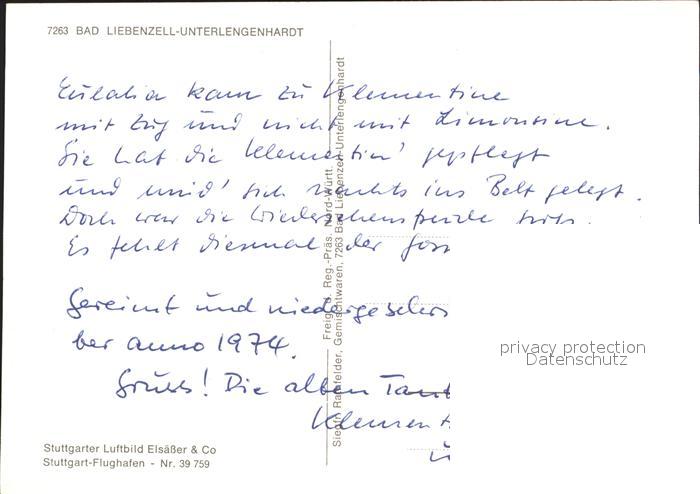 7263 BAD LIEBENZELL-UNTERLENGENHARDT
Eulalia kam zu Klementine
mit Zug und nicht mit Limousine.
Sie hat die Klementin' gepflegt
und müd' sich nachts ins Bett gelegt.
Doch war die Wiedersehensfreude
Es fehlt diesmal der
Gereimt und niedergeschrie
ber anno 1974.
Gruss! Die alten Tant
Klement
Freig. d. Reg.-Präs. Nord-Württ.
Gemischtwaren, 7263 Bad Liebenzell-Unterlengenhardt
Stuttgarter Luftbild Elsäßer & Co
Stuttgart-Flughafen - Nr. 39 759
privacy protection
Datenschutz